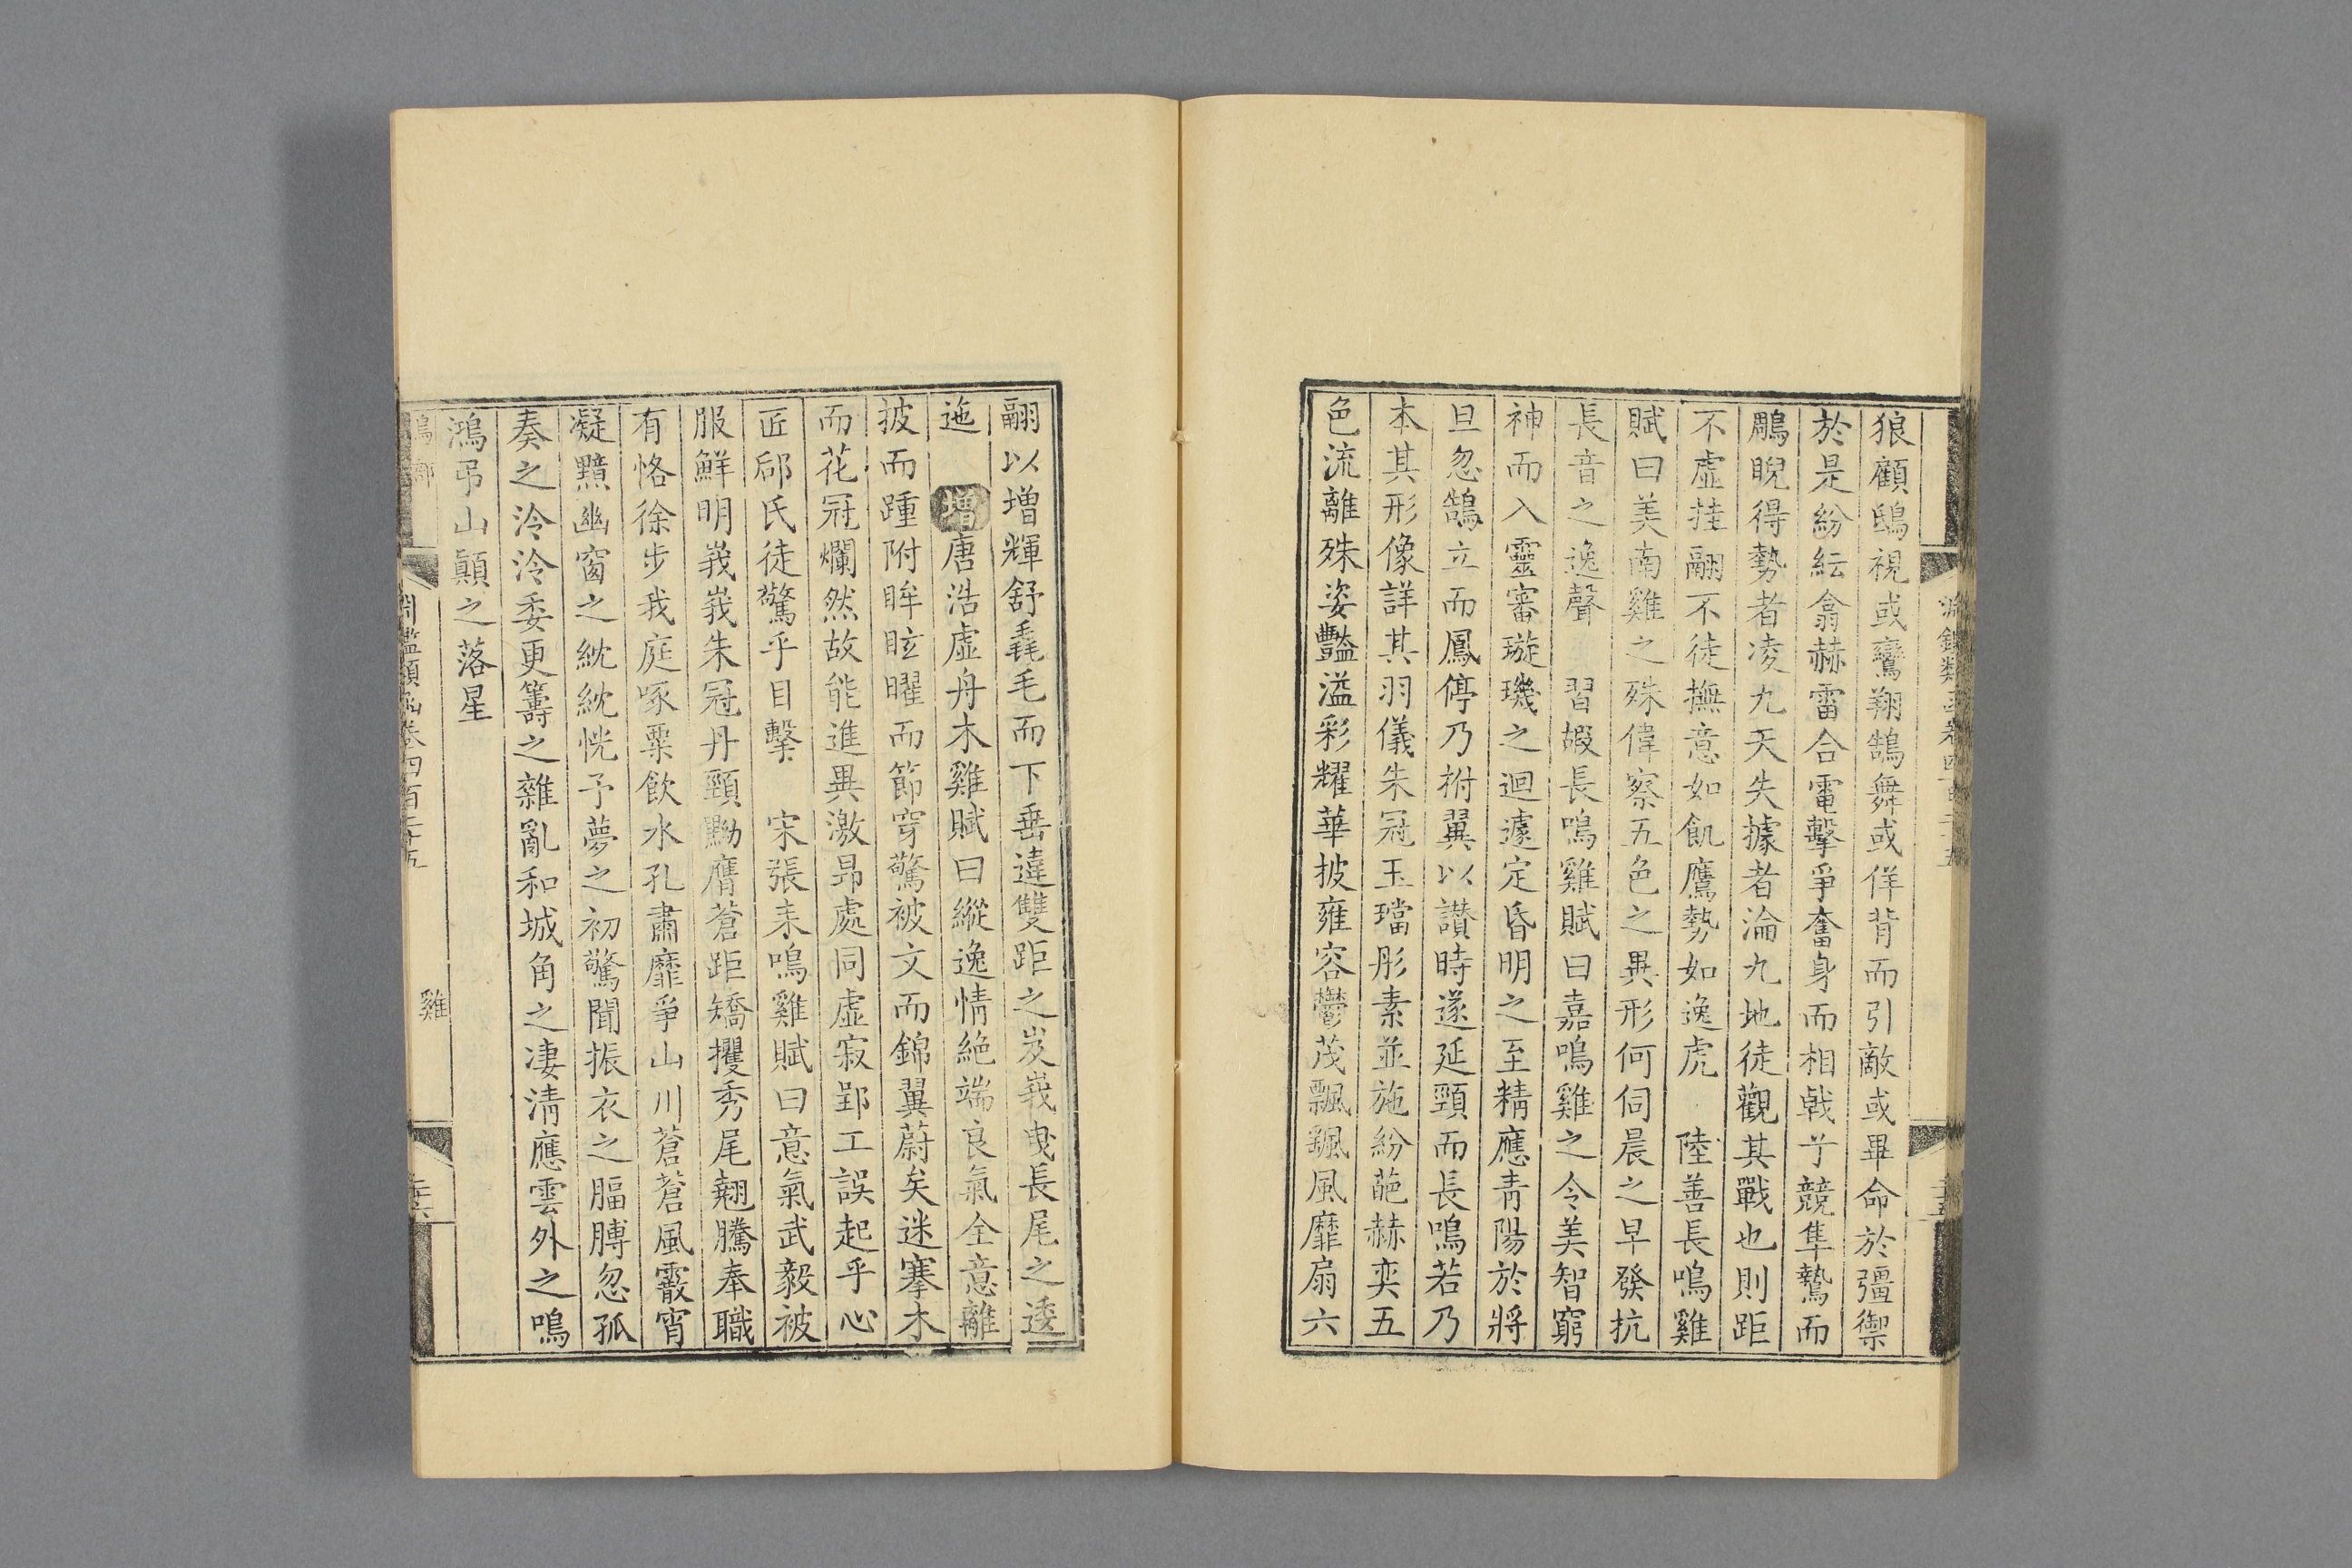 狼顧鴟視或鸞翔鵠舞或佯背而引敵或畢命於彊禦
於是紛紜翕赫雷合電擊爭奮身而相戟兮競隼鷙而
鵰睨得勢者凌九天失據者淪九地徒觀其戰也則距
不虛挂翮不徒撫意如飢鷹勢如逸虎　陸善長鳴雞
賦曰美南雞之殊偉察五色之異形何伺晨之早發抗
長音之逸聲　習嘏長鳴雞賦曰嘉鳴雞之令美智窮
神而入靈審璇璣之迴遽定昏明之至精應青陽於將
旦忽鵠立而鳳停乃拊翼以讃時遂延頸而長鳴若乃
本其形像詳其羽儀朱冠玉璫彤素並施紛葩赫奕五
色流離殊姿豔溢彩耀華披雍容鬱茂飄颻風靡扇六
翮以增輝舒毳毛而下垂違雙距之岌峩曳長尾之逶
迤　增唐浩虛舟木雞賦曰縱逸情絶端良氣全意離
披而踵附眸眩曜而節穿驚被文而錦翼蔚矣迷搴木
而花冠爛然故能進異激昂處同虛寂郢工誤起乎心
匠郈氏徒驚乎目擊　宋張耒鳴雞賦曰意氣武毅被
服鮮明峩峩朱冠丹頸黝膺蒼距矯攫秀尾翹騰奉職
有恪徐步我庭啄粟飲水孔肅靡爭山川蒼蒼風霰宵
凝黯幽窗之紞紞恍予夢之初驚聞振衣之腷膊忽孤
奏之泠泠委更籌之雜亂和城角之凄清應雲外之鳴
鴻弔山顛之落星
淵鑑類函卷四百二十五
雞
二十六